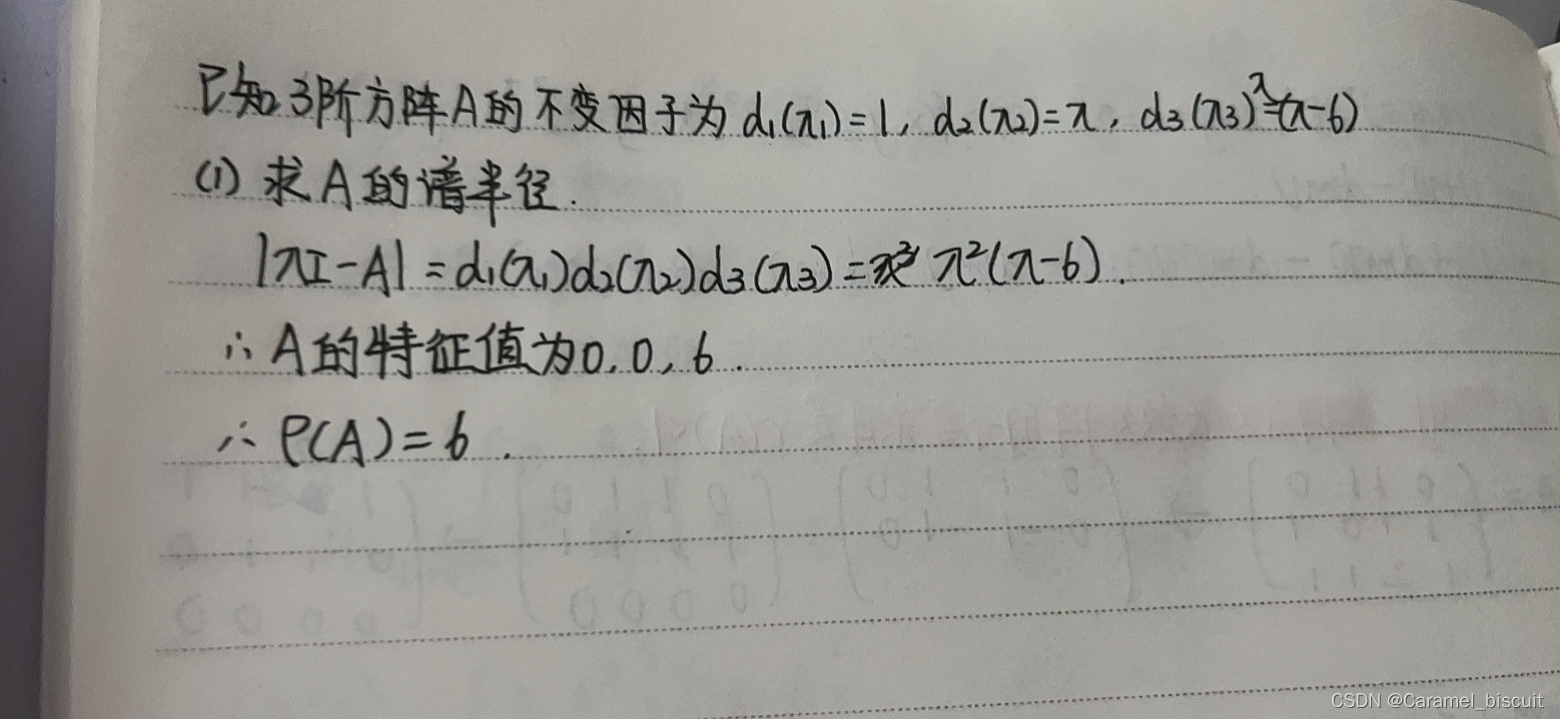 已知3阶方阵A的不变因子为 d₁(λ₁)=1, d₂(λ₂)=λ, d₃(λ₃)=λ(λ-6)
(1) 求A的谱半径.
|λI-A| = d₁(λ₁)d₂(λ₂)d₃(λ₃) = λ²(λ-6).
∴ A的特征值为0,0,6.
∴ ρ(A)=6.
CSDN @Caramel_biscuit